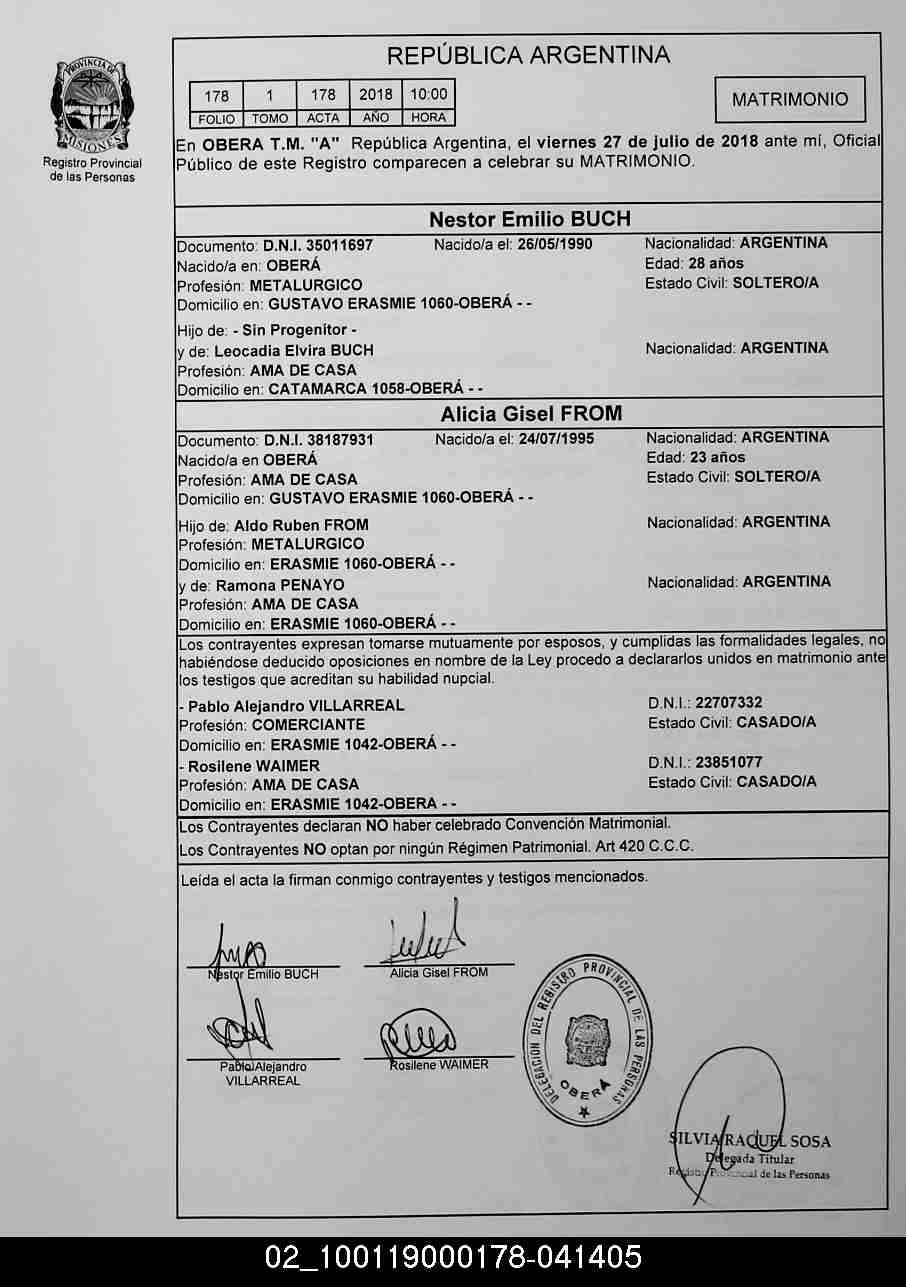 PROVINCIA DE
MISIONES
Registro Provincial
de las Personas
REPÚBLICA ARGENTINA
178 1 178 2018 10:00
FOLIO TOMO ACTA AÑO HORA
MATRIMONIO
En OBERA T.M. "A" República Argentina, el viernes 27 de julio de 2018 ante mí, Oficial
Público de este Registro comparecen a celebrar su MATRIMONIO.
Nestor Emilio BUCH
Documento: D.N.I. 35011697 Nacido/a el: 26/05/1990 Nacionalidad: ARGENTINA
Nacido/a en: OBERÁ Edad: 28 años
Profesión: METALURGICO Estado Civil: SOLTERO/A
Domicilio en: GUSTAVO ERASMIE 1060-OBERÁ - -
Hijo de: - Sin Progenitor -
y de: Leocadia Elvira BUCH Nacionalidad: ARGENTINA
Profesión: AMA DE CASA
Domicilio en: CATAMARCA 1058-OBERÁ - -
Alicia Gisel FROM
Documento: D.N.I. 38187931 Nacido/a el: 24/07/1995 Nacionalidad: ARGENTINA
Nacido/a en OBERÁ Edad: 23 años
Profesión: AMA DE CASA Estado Civil: SOLTERO/A
Domicilio en: GUSTAVO ERASMIE 1060-OBERÁ - -
Hijo de: Aldo Ruben FROM Nacionalidad: ARGENTINA
Profesión: METALURGICO
Domicilio en: ERASMIE 1060-OBERÁ - -
y de: Ramona PENAYO Nacionalidad: ARGENTINA
Profesión: AMA DE CASA
Domicilio en: ERASMIE 1060-OBERÁ - -
Los contrayentes expresan tomarse mutuamente por esposos, y cumplidas las formalidades legales, no
habiéndose deducido oposiciones en nombre de la Ley procedo a declararlos unidos en matrimonio ante
los testigos que acreditan su habilidad nupcial.
- Pablo Alejandro VILLARREAL D.N.I.: 22707332
Profesión: COMERCIANTE Estado Civil: CASADO/A
Domicilio en: ERASMIE 1042-OBERÁ - -
- Rosilene WAIMER D.N.I.: 23851077
Profesión: AMA DE CASA Estado Civil: CASADO/A
Domicilio en: ERASMIE 1042-OBERA - -
Los Contrayentes declaran NO haber celebrado Convención Matrimonial.
Los Contrayentes NO optan por ningún Régimen Patrimonial. Art 420 C.C.C.
Leída el acta la firman conmigo contrayentes y testigos mencionados.
Nestor Emilio BUCH Alicia Gisel FROM
Pablo Alejandro Rosilene WAIMER
VILLARREAL
DELEGACION DEL REGISTRO PROVINCIAL DE LAS PERSONAS
OBERÁ
SILVIA RAQUEL SOSA
Delegada Titular
Registro Provincial de las Personas
02_100119000178-041405